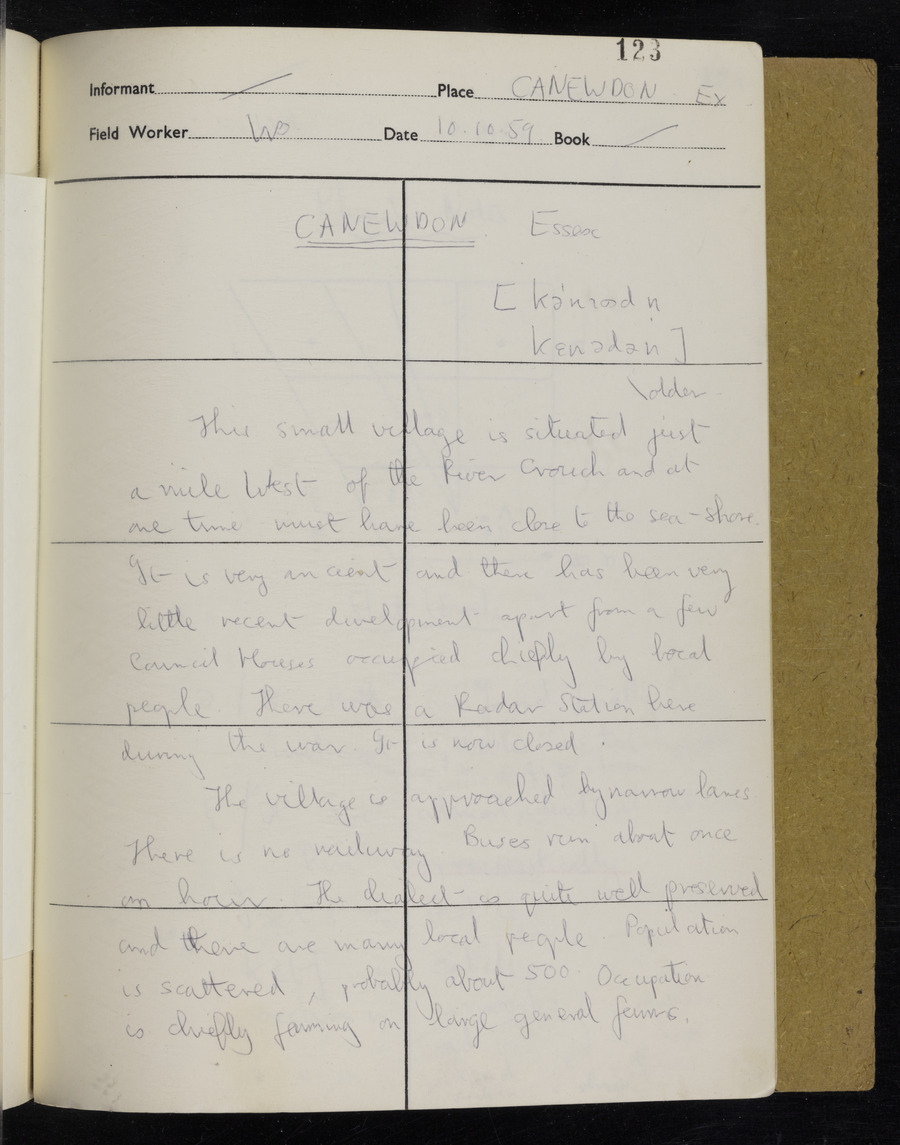 123
Informant Place CANEWDON Ex
Field Worker Date 10.10.59 Book
CANEWDON Essex
[
kɛnədən]
older
This small village is situated just
a mile West of the River Crouch and at
one time must have been close to the sea-shore.
It is very ancient and there has been very
little recent development apart from a few
Council Houses occupied chiefly by local
people. There was a Radar Station here
during the war. It is now closed.
The village is approached by narrow lanes.
There is no railway. Buses run about once
an hour. The dialect is quite well preserved
and there are many local people. Population
is scattered, probably about 500. Occupation
is chiefly farming on large general farms.